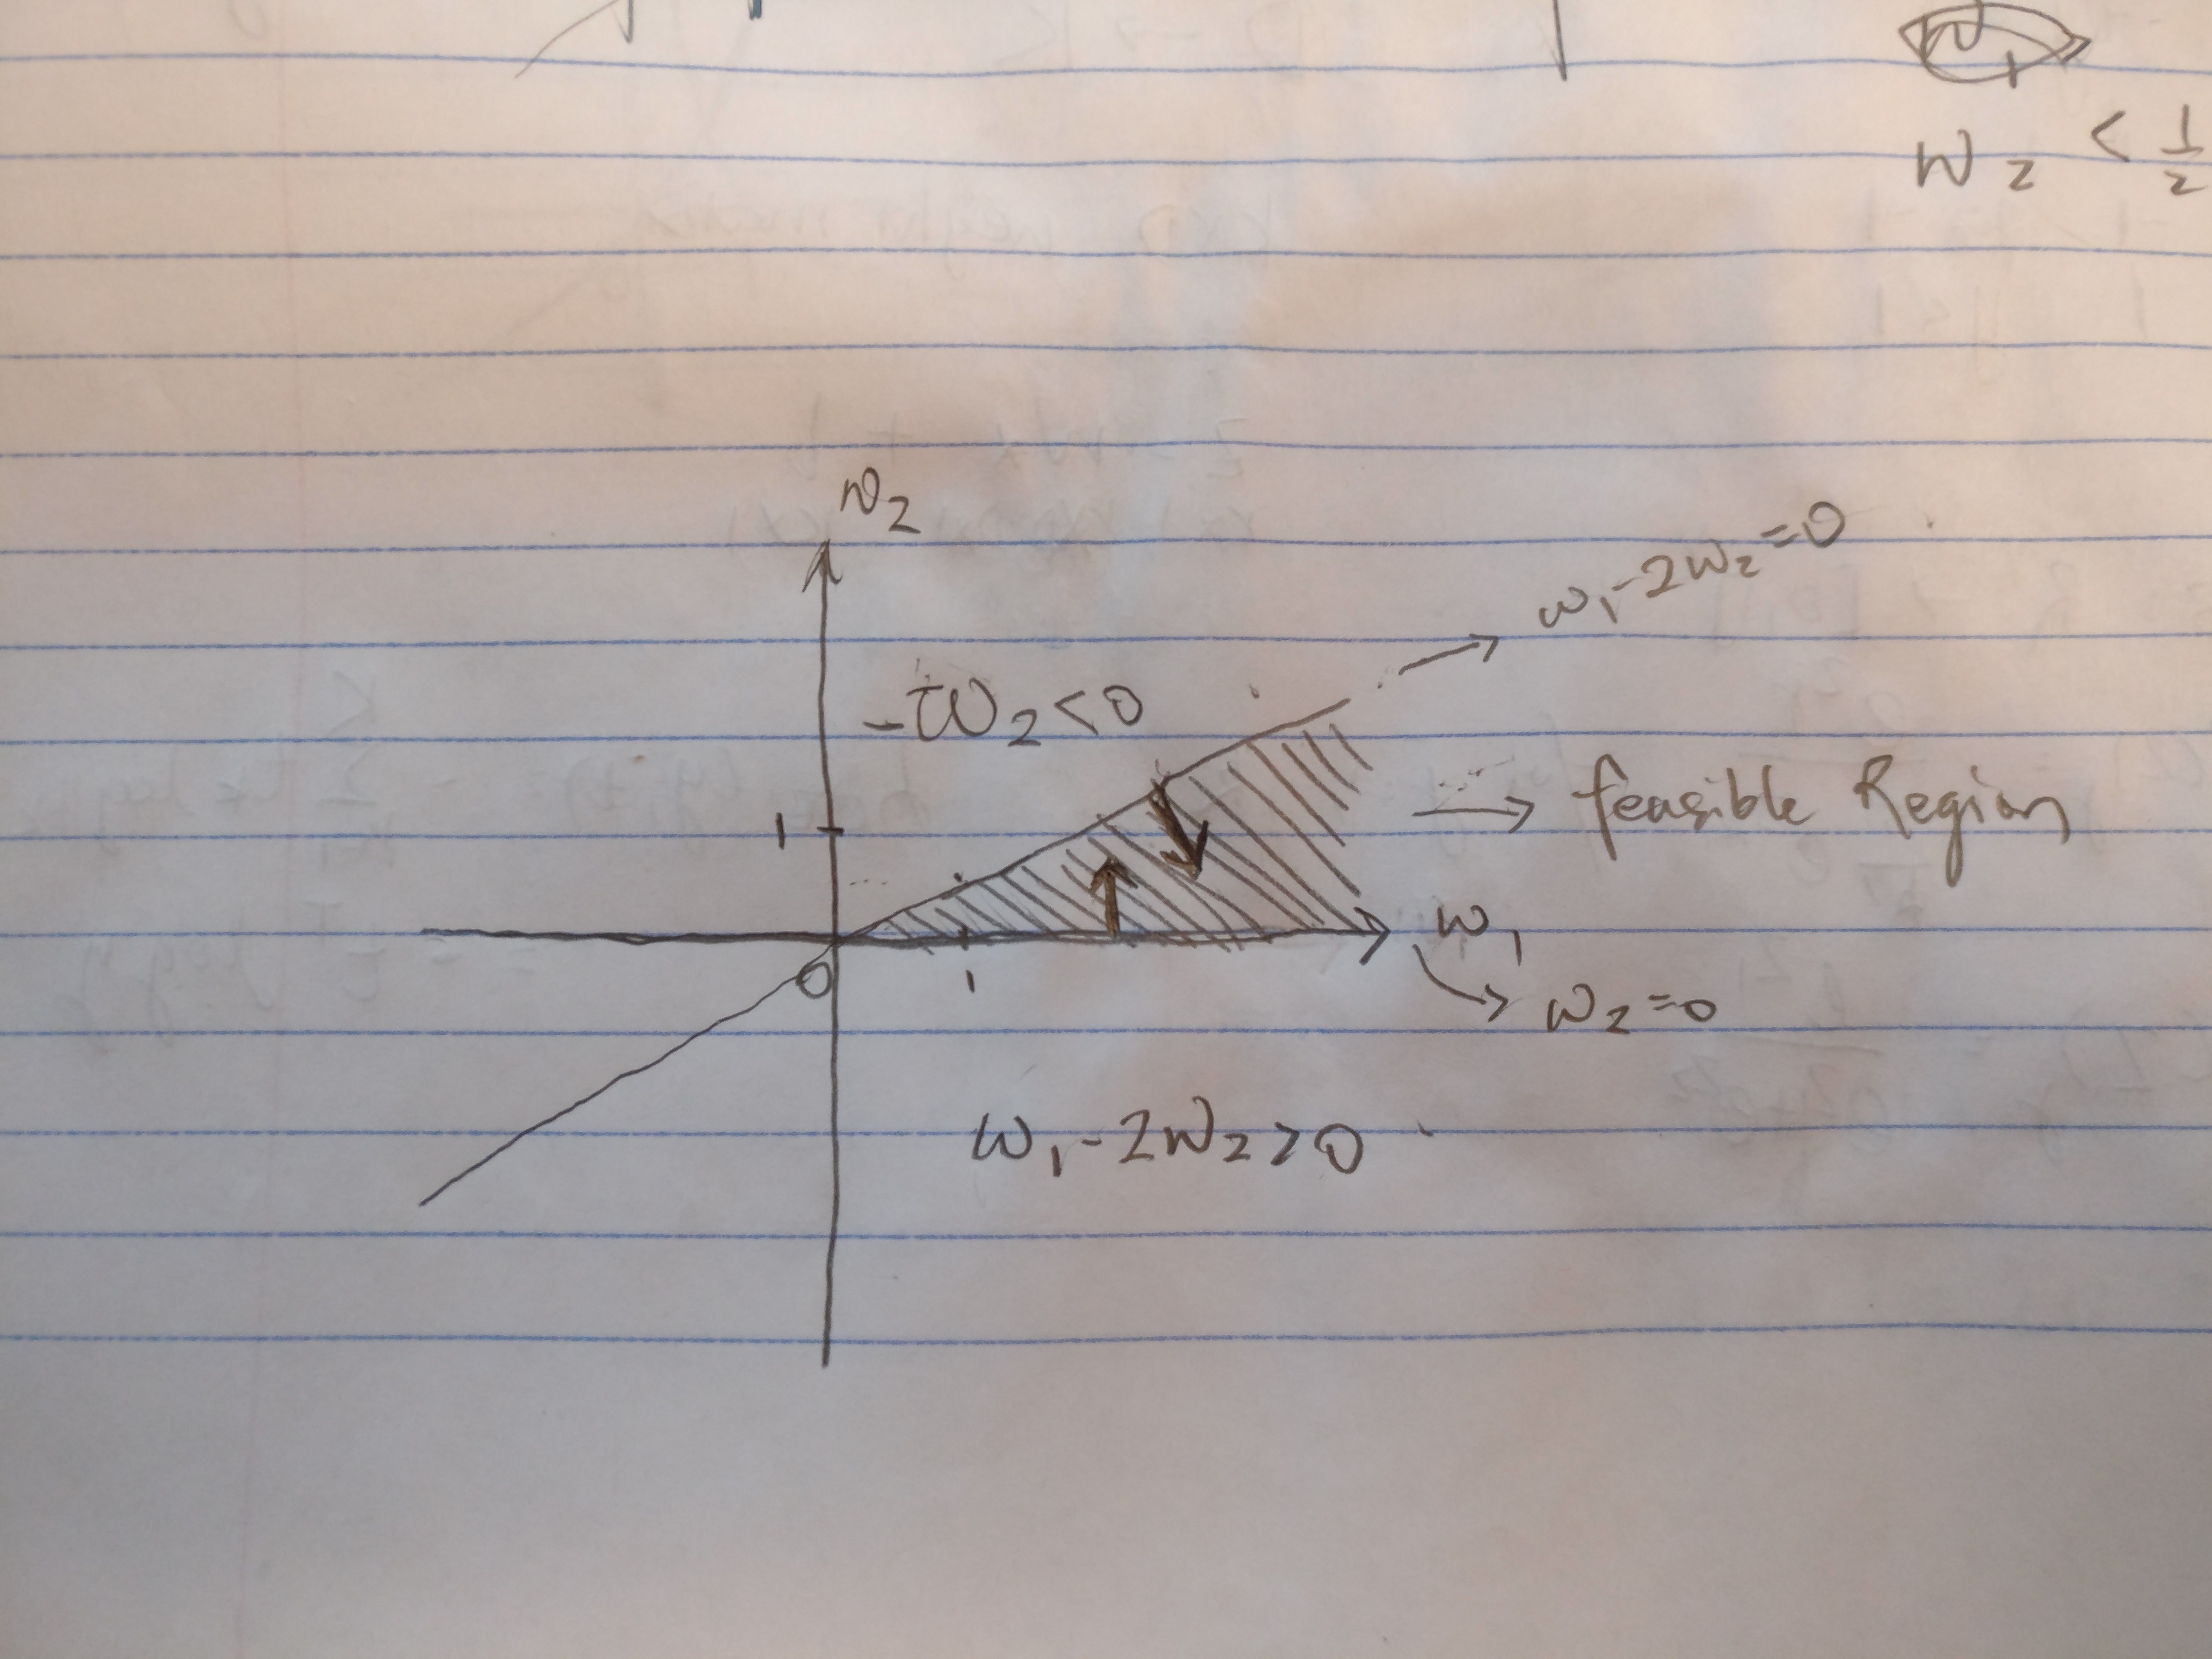 w₂ < 1/2
w₂
w₁-2w₂=0
-w₂<0
1
feasible Region
w₁
0
1
w₂=0
w₁-2w₂>0